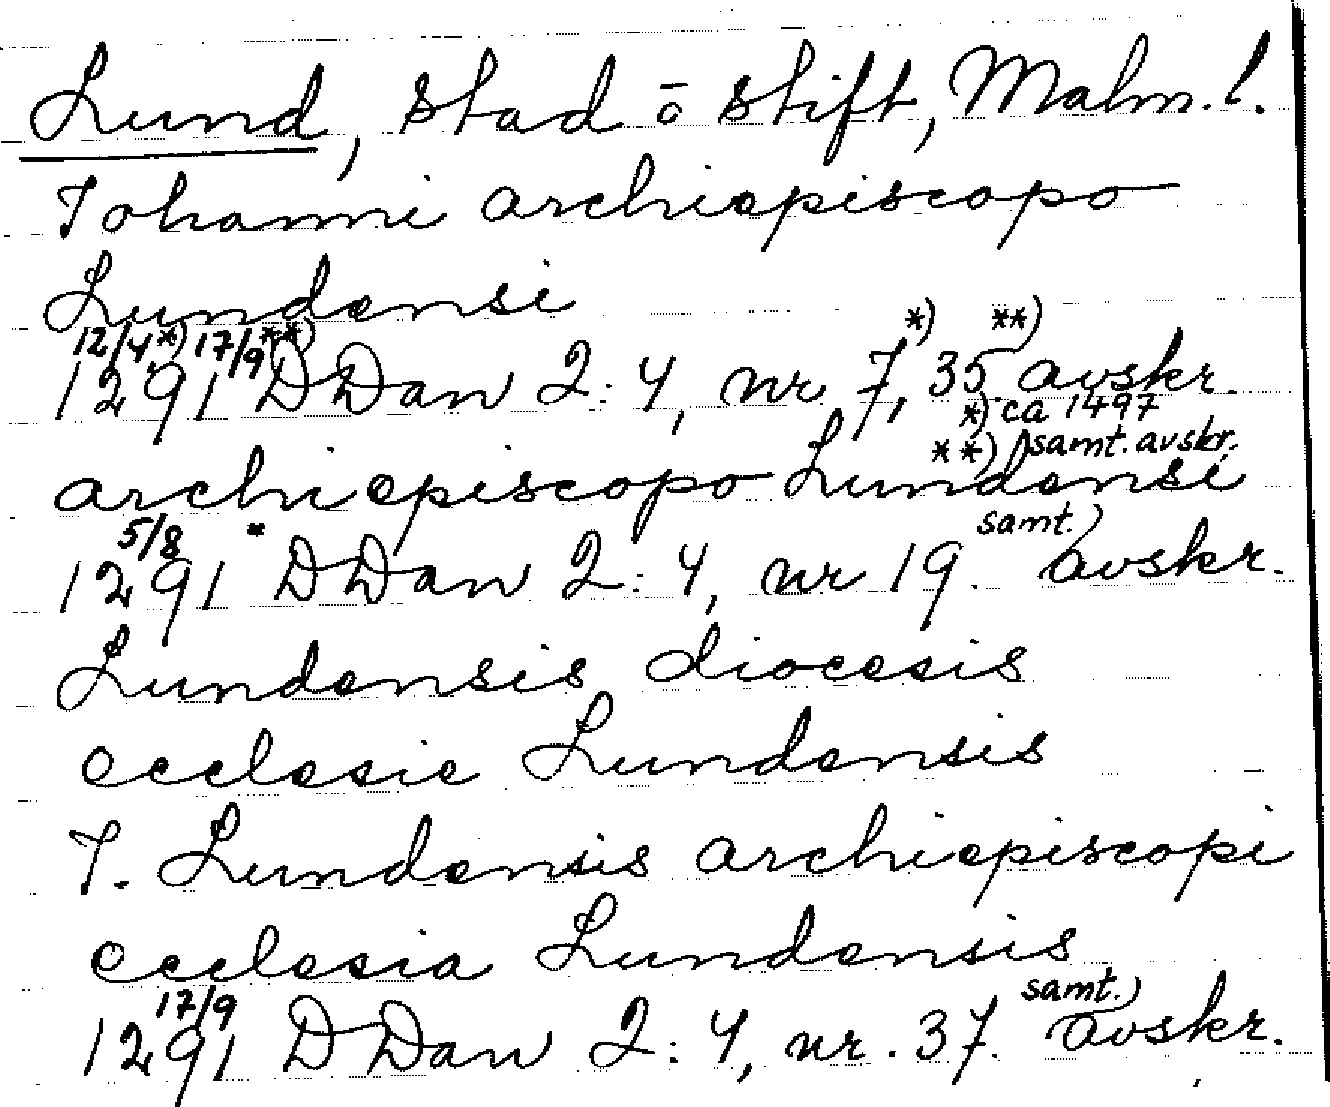 Lund, stad ō stift, Malm. l.
Johanni archiepiscopo
Lundensi
12/4 *) 17/9 **)
1291 DDan 2:4, nr 7, *) 35 **) avskr.
*) ca 1497
**) samt. avskr.
archiepiscopo Lundensi
5/8
1291 DDan 2:4, nr 19. samt.) avskr.
Lundensis diocesis
ecclesie Lundensis
J. Lundensis archiepiscopi
ecclesia Lundensis
17/9
1291 DDan 2:4, nr. 37. samt.) avskr.